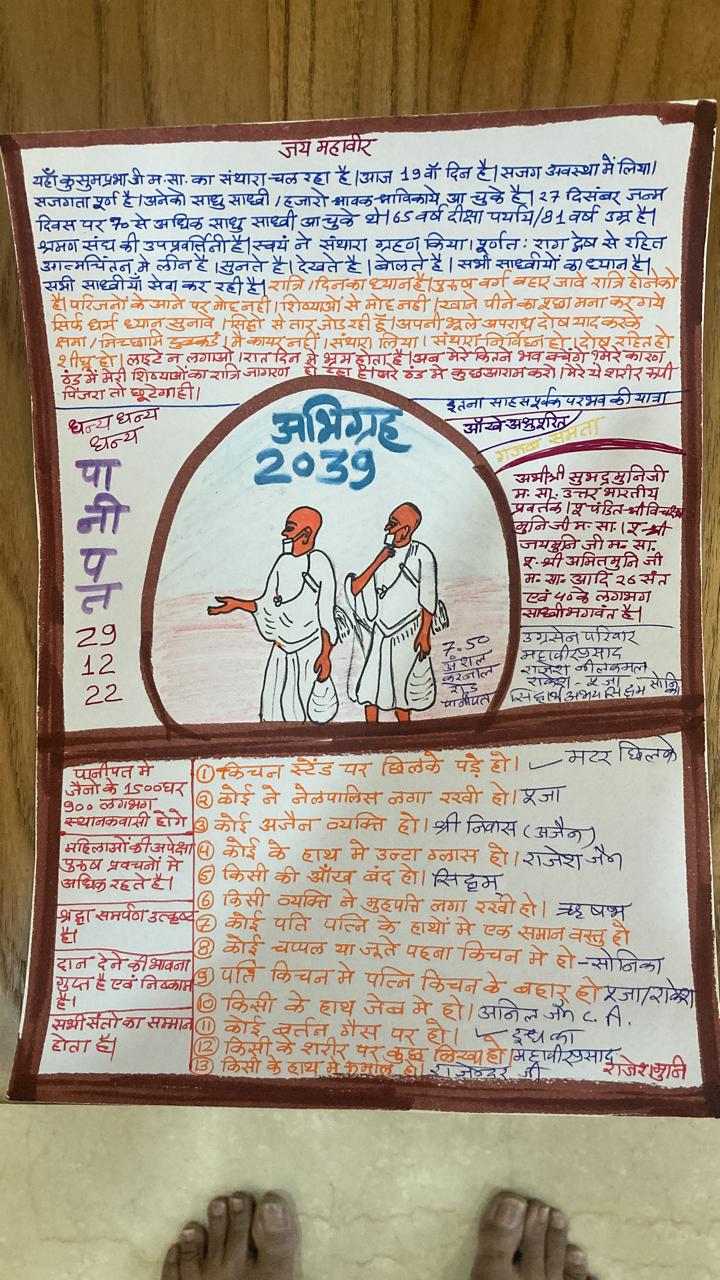 जय महावीर
यहाँ कुसुमप्रभाजी म.सा. का संथारा चल रहा है। आज 19 वाँ दिन है। सजग अवस्था में लिया।
सजगता पूर्ण है। अनेको साधु साध्वी / हजारो श्रावक-श्राविकाये आ चुके है। 27 दिसंबर जन्म
दिवस पर 70 से अधिक साधु साध्वी आ चुके थे। 65 वर्ष दीक्षा पर्याय / 81 वर्ष उम्र है।
श्रमण संघ की उपप्रवर्तिती है। स्वयं ने संथारा ग्रहण किया। पूर्णतः राग द्वेष से रहित
आत्मचिंतन मे लीन है। सुनते है। देखते है। बोलते है। सभी साध्वीयों का ध्यान है।
सभी साध्वीयाँ सेवा कर रही है। रात्रि / दिन का ध्यान है। पुरुष वर्ग बहार जावे रात्रि होने को
है। परिजनों के आने पर मोह नही। शिष्याओं से मोह नही। खाने पीने का पूछा मना कर गये
सिर्फ धर्म ध्यान सुनावे। सिद्दो से तार जोड रही हूँ। अपनी भूले अपराध दोष याद करके
क्षमा / मिच्छामि दुक्कडं। मै कायर नही। संथारा लिया। संथारा निर्विघ्न हो। दोष रहित हो
शीघ्र हो। लाइटे न लगाओ। रात दिन मे भ्रम होता है। अब मेरे कितने भव बचेंगे ? मेरे कारण
ठंड में मेरी शिष्याओं का रात्रि जागरण हो रहा है। अरे ठंड मे कुछ आराम करो। मेरे ये शरीर रूपी
पिंजरा तो छूटेगा ही।
इतना साहस पूर्वक परभव की यात्रा
आँखे अश्रुपूरित
गजब समता
धन्य धन्य
धन्य
पानीपत
29
12
22
अभिग्रह
2039
7.50
अंशल
करनाल
रोड
पानीपत
अभी श्री सुभद्र मुनिजी
म. सा. उत्तर भारतीय
प्रवर्तक। पू. पंडित श्री विचक्षण
मुनि जी म. सा.। पू. श्री
जयमुनि जी म. सा.
पू. श्री अमितमुनि जी
म. सा. आदि 26 संत
एवं 40 के लगभग
साध्वी भगवंत है।
उग्रसेन परिवार
महावीर प्रसाद
राजेश नीलकमल
राकेश - पूजा - सोनिका
सिद्धार्थ अभय सिद्दम
पानीपत मे
जैनो के 1500 घर
900 लगभग
स्थानकवासी होंगे
महिलाओं की अपेक्षा
पुरुष प्रवचनों मे
अधिक रहते है।
श्रद्वा समर्पण उत्कृष्ट
है।
दान देने की भावना
गुप्त है एवं निष्काम
है।
सभी संतो का सम्मान
होता है।
① किचन स्टेंड पर छिलके पड़े हो। ✓ मटर छिलके
② कोई ने नेलपालिस लगा रखी हो। पूजा
③ कोई अजैन व्यक्ति हो। श्री निवास (अजैन)
④ कोई के हाथ मे उन्टा ग्लास हो। राजेश जैन
⑤ किसी की आँख बंद हो। सिद्दम
⑥ किसी व्यक्ति ने मुहपति लगा रखी हो। ऋषभ
⑦ कोई पति पत्नि के हाथों मे एक समान वस्तु हो
⑧ कोई चप्पल या जूते पहना किचन मे हो - सोनिका
⑨ पति किचन मे पत्नि किचन के बहार हो पूजा/राकेश
⑩ किसी के हाथ जेब मे हो। अनिल जैन C. A.
⑪ कोई बर्तन गैस पर हो। ✓ दूध का
⑫ किसी के शरीर पर कुछ लिखा हो। महावीर प्रसाद
⑬ किसी के हाथ मे रूमाल हो। राजेन्दर जी
राजेश मुनि